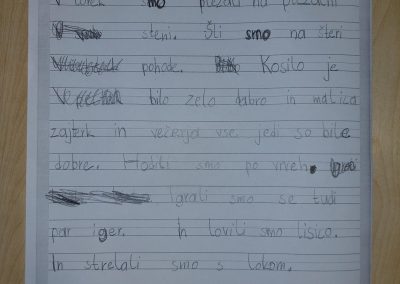 V torek smo plezali na plezalni
steni. Šli smo na šteri
pohode. Kosilo je
bilo zelo dobro in malica
zajtrk in večerja vse jedi so bile
dobre. Hodili smo po vrveh.
Igrali smo se tudi
par iger. In lovili smo lisico.
In streljali smo s lokom.